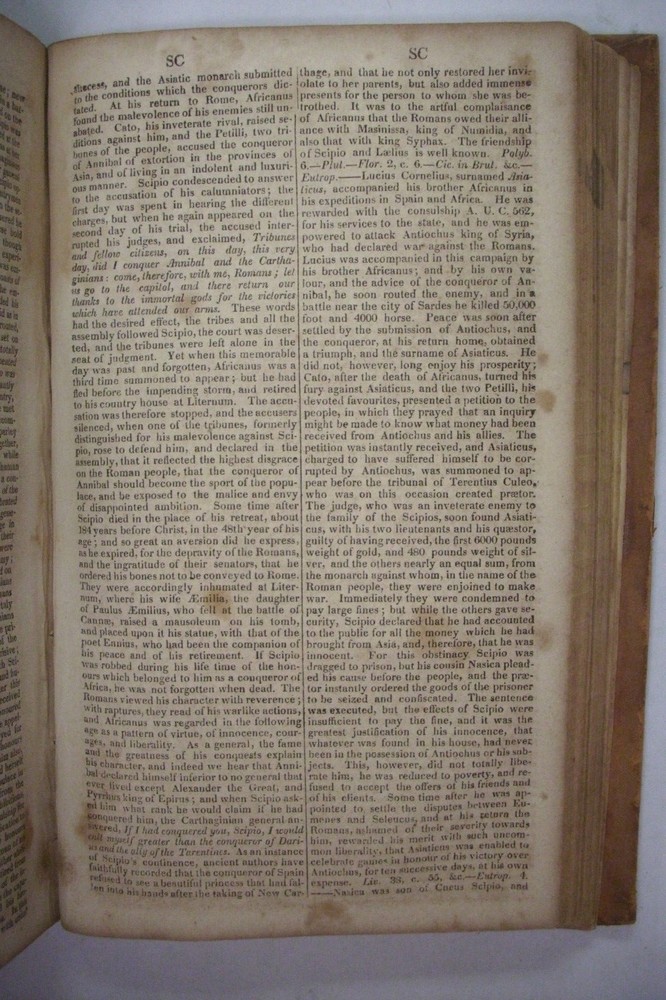 SC
success, and the Asiatic monarch submitted
to the conditions which the conquerors dic-
tated. At his return to Rome, Africanus
found the malevolence of his enemies still un-
abated. Cato, his inveterate rival, raised se-
ditions against him, and the Petilli, two tri-
bunes of the people, accused the conqueror
of Annibal of extortion in the provinces of
Asia, and of living in an indolent and luxuri-
ous manner. Scipio condescended to answer
to the accusation of his calumniators; the
first day was spent in hearing the different
charges, but when he again appeared on the
second day of his trial, the accused inter-
rupted his judges, and exclaimed, Tribunes
and fellow citizens, on this day, this very
day, did I conquer Annibal and the Cartha-
ginians: come, therefore, with me, Romans; let
us go to the capitol, and there return our
thanks to the immortal gods for the victories
which have attended our arms. These words
had the desired effect, the tribes and all the
assembly followed Scipio, the court was deser-
ted, and the tribunes were left alone in the
seat of judgment. Yet when this memorable
day was past and forgotten, Africanus was a
third time summoned to appear; but he had
fled before the impending storm, and retired
to his country house at Liternum. The accu-
sation was therefore stopped, and the accusers
silenced, when one of the tribunes, formerly
distinguished for his malevolence against Sci-
pio, rose to defend him, and declared in the
assembly, that it reflected the highest disgrace
on the Roman people, that the conqueror of
Annibal should become the sport of the popu-
lace, and be exposed to the malice and envy
of disappointed ambition. Some time after
Scipio died in the place of his retreat, about
184 years before Christ, in the 48th year of his
age; and so great an aversion did he express,
as he expired, for the depravity of the Romans,
and the ingratitude of their senators, that he
ordered his bones not to be conveyed to Rome.
They were accordingly inhumated at Liter-
num, where his wife Æmilia, the daughter
of Paulus Æmilius, who fell at the battle of
Cannæ, raised a mausoleum on his tomb,
and placed upon it his statue, with that of the
poet Ennius, who had been the companion of
his peace and of his retirement. If Scipio
was robbed during his life time of the hon-
ours which belonged to him as a conqueror of
Africa, he was not forgotten when dead. The
Romans viewed his character with reverence;
with raptures, they read of his warlike actions,
and Africanus was regarded in the following
age as a pattern of virtue, of innocence, cour-
age, and liberality. As a general, the fame
and the greatness of his conquests explain
his character, and indeed we hear that Anni-
bal declared himself inferior to no general that
ever lived except Alexander the Great, and
Pyrrhus king of Epirus; and when Scipio ask-
ed him what rank he would claim if he had
conquered him, the Carthaginian general an-
swered, If I had conquered you, Scipio, I would
call myself greater than the conqueror of Dari-
us and the ally of the Tarentines. As an instance
of Scipio's continence, ancient authors have
faithfully recorded that the conqueror of Spain
refused to see a beautiful princess that had fal-
len into his hands after the taking of New Car-
SC
thage, and that he not only restored her invi-
olate to her parents, but also added immense
presents for the person to whom she was be-
trothed. It was to the artful complaisance
of Africanus that the Romans owed their alli-
ance with Masinissa, king of Numidia, and
also that with king Syphax. The friendship
of Scipio and Lælius is well known. Polyb.
6.—Plut.—Flor. 2, c. 6.—Cic. in Brut. &c.—
Eutrop.——Lucius Cornelius, surnamed Asia-
ticus, accompanied his brother Africanus in
his expeditions in Spain and Africa. He was
rewarded with the consulship A. U. C. 562,
for his services to the state, and he was em-
powered to attack Antiochus king of Syria,
who had declared war against the Romans.
Lucius was accompanied in this campaign by
his brother Africanus; and by his own va-
lour, and the advice of the conqueror of An-
nibal, he soon routed the enemy, and in a
battle near the city of Sardes he killed 50,000
foot and 4000 horse. Peace was soon after
settled by the submission of Antiochus, and
the conqueror, at his return home, obtained
a triumph, and the surname of Asiaticus. He
did not, however, long enjoy his prosperity;
Cato, after the death of Africanus, turned his
fury against Asiaticus, and the two Petilli, his
devoted favourites, presented a petition to the
people, in which they prayed that an inquiry
might be made to know what money had been
received from Antiochus and his allies. The
petition was instantly received, and Asiaticus,
charged to have suffered himself to be cor-
rupted by Antiochus, was summoned to ap-
pear before the tribunal of Terentius Culeo,
who was on this occasion created prætor.
The judge, who was an inveterate enemy to
the family of the Scipios, soon found Asiati-
cus, with his two lieutenants and his quæstor,
guilty of having received, the first 6000 pounds
weight of gold, and 480 pounds weight of sil-
ver, and the others nearly an equal sum, from
the monarch against whom, in the name of the
Roman people, they were enjoined to make
war. Immediately they were condemned to
pay large fines; but while the others gave se-
curity, Scipio declared that he had accounted
to the public for all the money which he had
brought from Asia, and, therefore, that he was
innocent. For this obstinacy Scipio was
dragged to prison, but his cousin Nasica plead-
ed his cause before the people, and the præ-
tor instantly ordered the goods of the prisoner
to be seized and confiscated. The sentence
was executed, but the effects of Scipio were
insufficient to pay the fine, and it was the
greatest justification of his innocence, that
whatever was found in his house, had never
been in the possession of Antiochus or his sub-
jects. This, however, did not totally libe-
rate him, he was reduced to poverty, and re-
fused to accept the offers of his friends and
of his clients. Some time after he was ap-
pointed to settle the disputes between Eu-
menes and Seleucus, and at his return the
Romans, ashamed of their severity towards
him, rewarded his merit with such uncom-
mon liberality, that Asiaticus was enabled to
celebrate games in honour of his victory over
Antiochus, for ten successive days, at his own
expense. Liv. 38, c. 55, &c.—Eutrop. 4.
——Nasica was son of Cneus Scipio, and